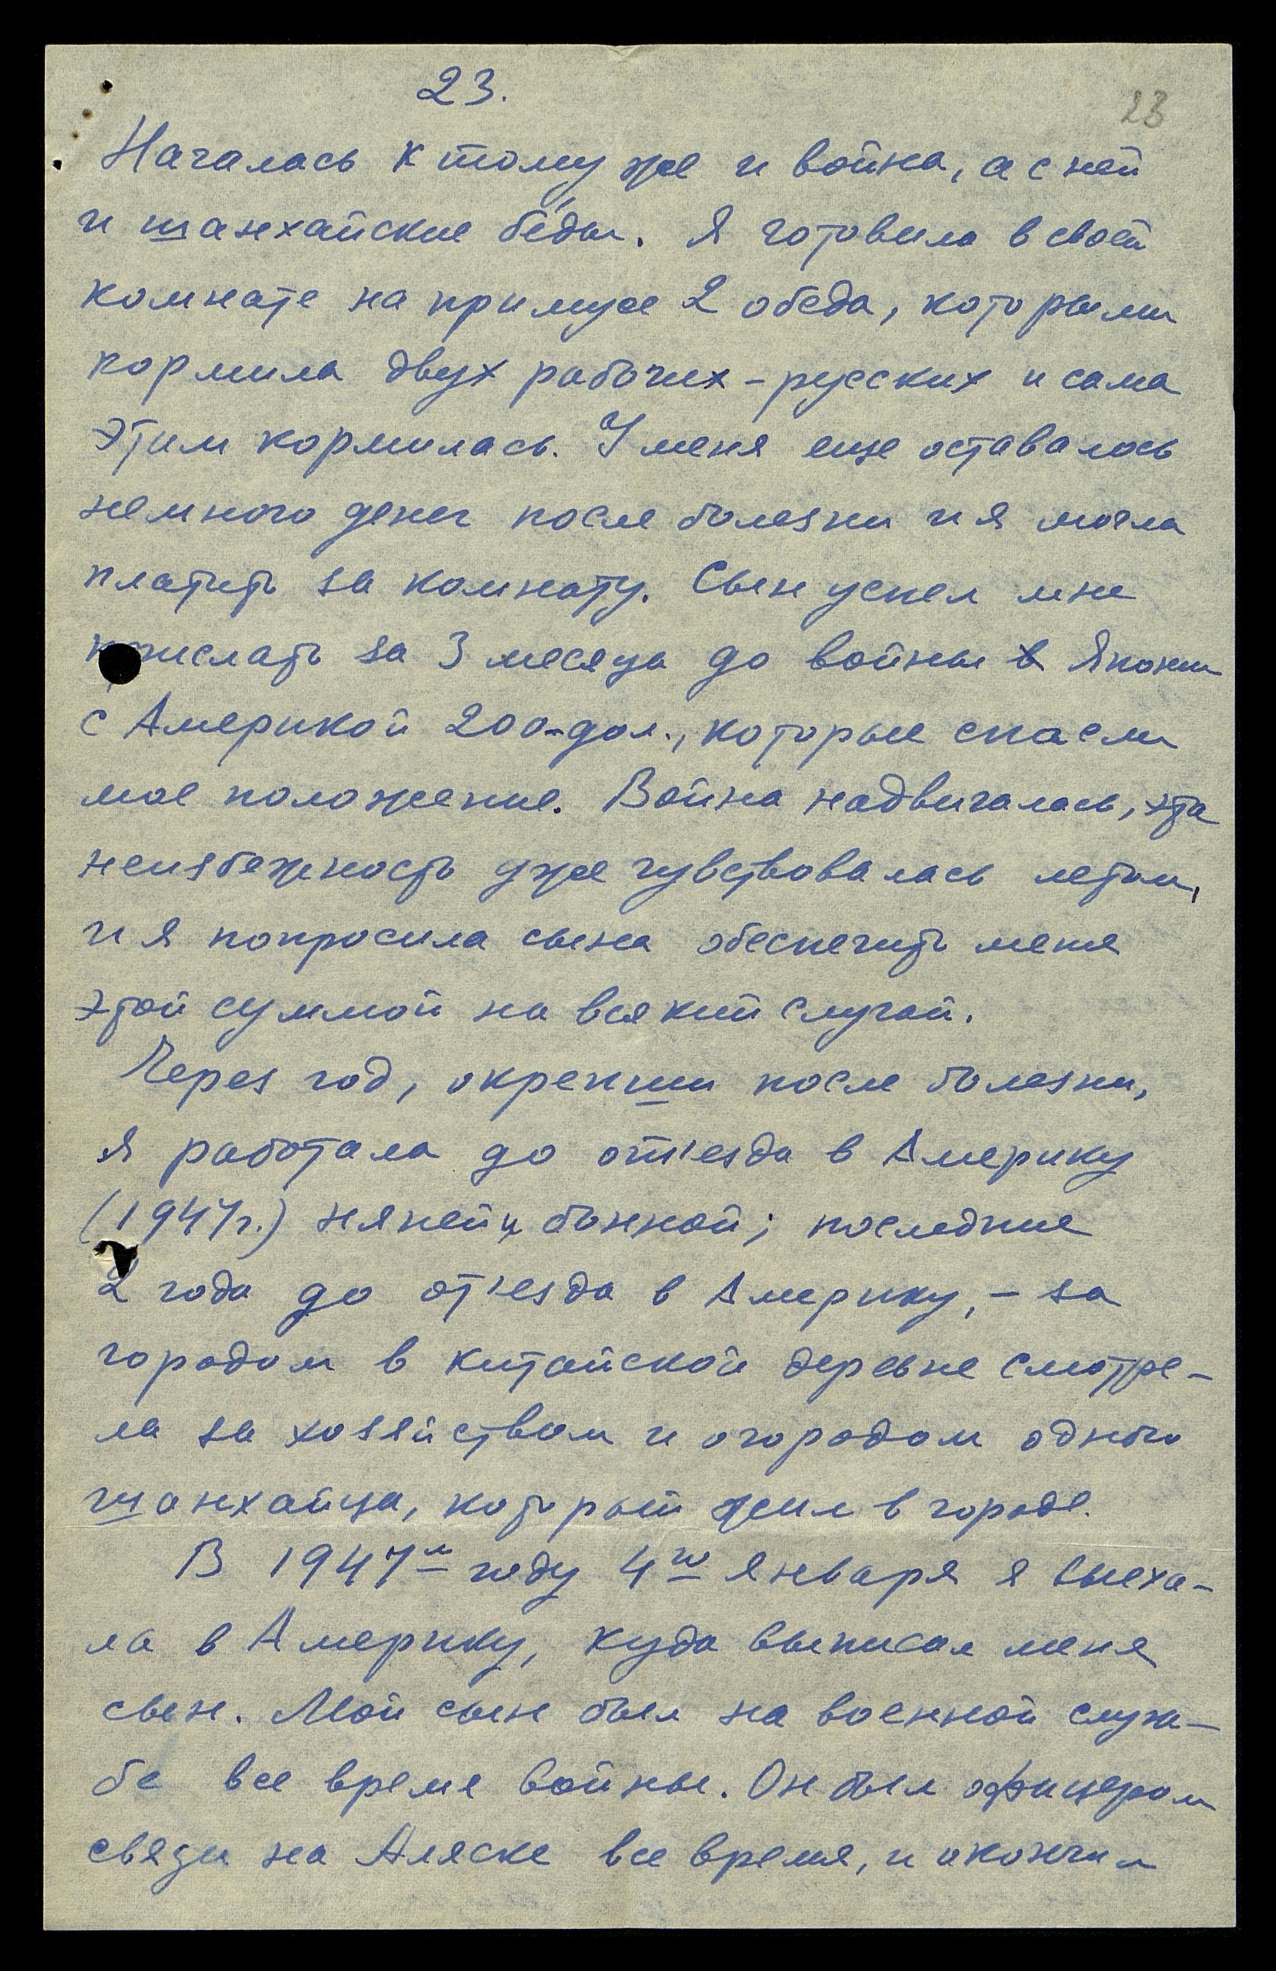 23.
23
Началась к тому же и война, а с ней
и шанхайские беды. Я готовила в своей
комнате на примусе 2 обеда, которыми
кормила двух рабочих-русских и сама
этим кормилась. У меня еще оставалось
немного денег после болезни и я могла
платить за комнату. Сын успел мне
прислать за 3 месяца до войны в Японии
с Америкой 200-дол., которые спасли
мое положение. Война надвигалась, эта
неизбежность уже чувствовалась летом,
и я попросила сына обеспечить меня
этой суммой на всякий случай.
Через год, окрепши после болезни,
я работала до от'езда в Америку
(1947г.) няней и бонной; последние
2 года до от'езда в Америку, – за
городом в китайской деревне смотре-
ла за хозяйством и огородом одного
шанхайца, который жил в городе.
В 1947м году 4го января я выеха-
ла в Америку, куда выписал меня
сын. Мой сын был на военной служ-
бе все время войны. Он был офицером
связи на Аляске все время, и окончил